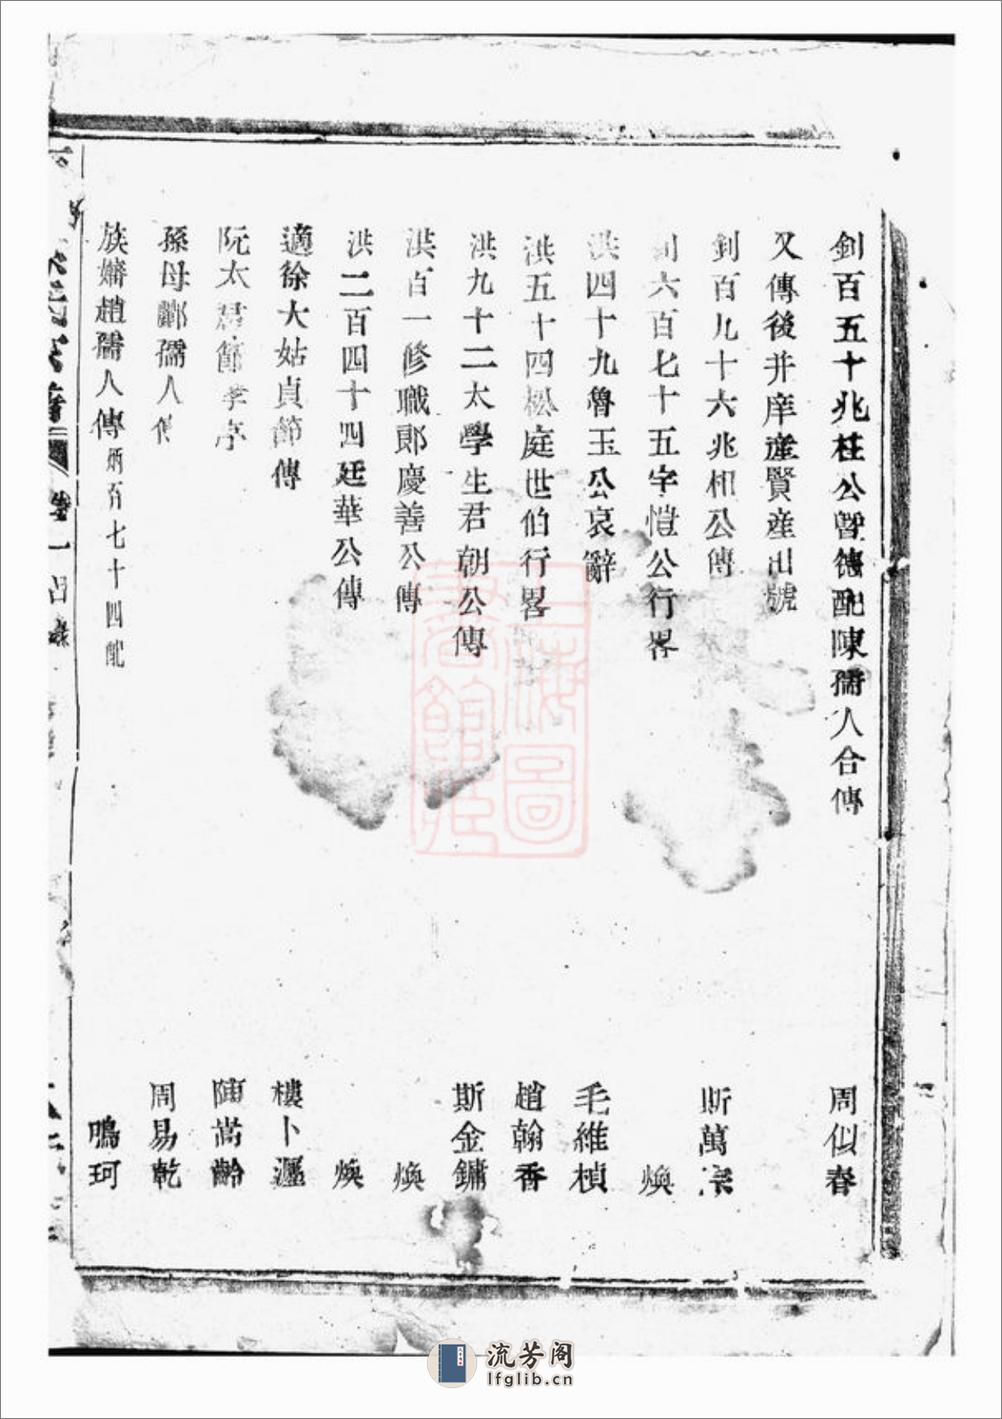 釗百五十兆桂公曁德配陳孺人合傳 周似春
又傳後并庠產賢產出號
釗百九十六兆相公傳 斯萬宗
釗六百七十五字愷公行畧 煥
洪四十九魯玉公哀辭 毛維楨
洪五十四松庭世伯行畧 趙翰香
洪九十二太學生君朝公傳 斯金鏞
洪百一修職郎慶善公傳 煥
洪二百四十四廷華公傳 煥
適徐大姑貞節傳 樓卜瀍
阮太君節孝序 陳嵩齡
孫母酈孺人傳 周易乾
族嬸趙孺人傳炳百七十四配 鳴珂
宗譜 卷一目錄
上海圖書館藏
流芳阁
lfglib.cn